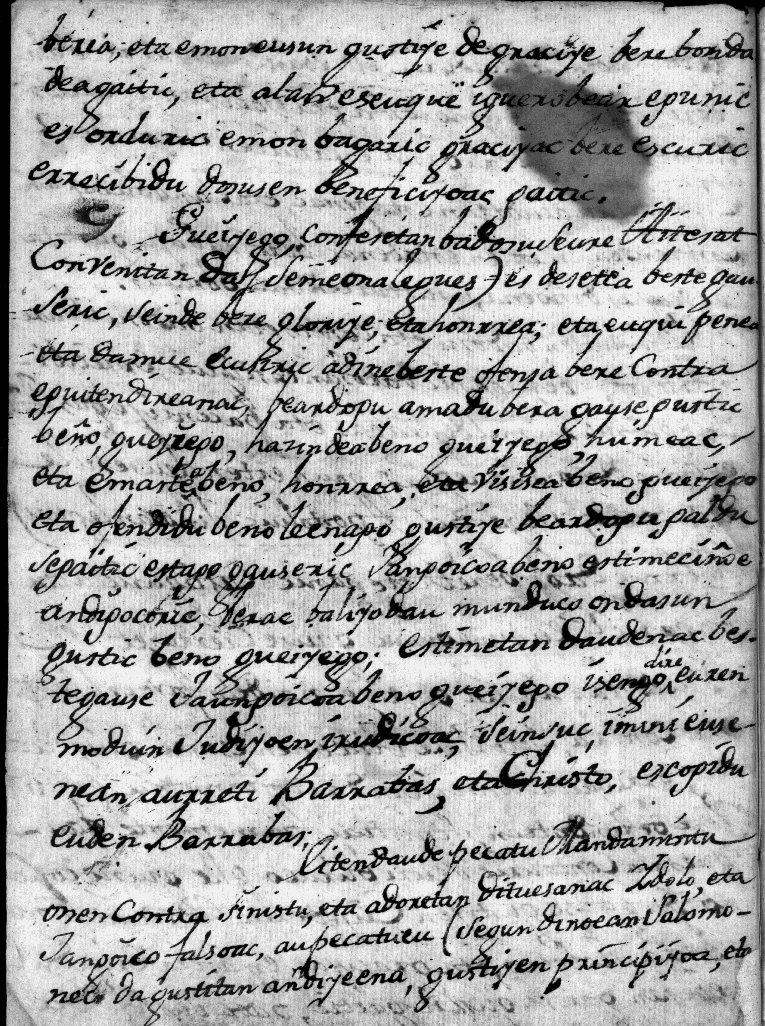 beria, eta emon eusun gustije de gracije bere bonda
deagaitic, eta alan eseuqué iguerobeair epunic
es orduric emon bagaric gracijac bere escuric
errecibidu dosusen beneficijoac gaitic.
Gueijego, confesetan badosu seure
Convenitan da (Semeonalegues) es desetea beste gau
seric, seinde bere glorije, eta honrrea; eta euqui penea
eta damue ecusiric adinebeste ofensa bere Contra
eguitendireanac, beardogu amadu bera gause gustic
beño, gueijego, hazindea beno gueijego, humeac,
eta emaztea beno, honrrea, eta visisea beno gueijego
eta ofendidu beno leenago, gustije beardogu galdu
Segaitic estago gauseric Jangoicoa beno estimecino e
andigocoric, berac balijo dau munduco ondasun
gustic beno gueijego; estimetan daudenac bes-
tegause Jaungoicoa beno gueijego isengo dire, euren
moduin Judijoen irudicoac, seinsuc imini euse-
nean aurreti Barrabas, eta Christo, escogidu
euden Barrabas.
Citendaude pecatu Mandamintu
onen Contra finistu, eta adoretan dituesanac Idolo, eta
Jangoico falsoac, au pecatueu (segun dinoean Salomo-
nec da gustitan andijeena, gustijen principijoa, eta